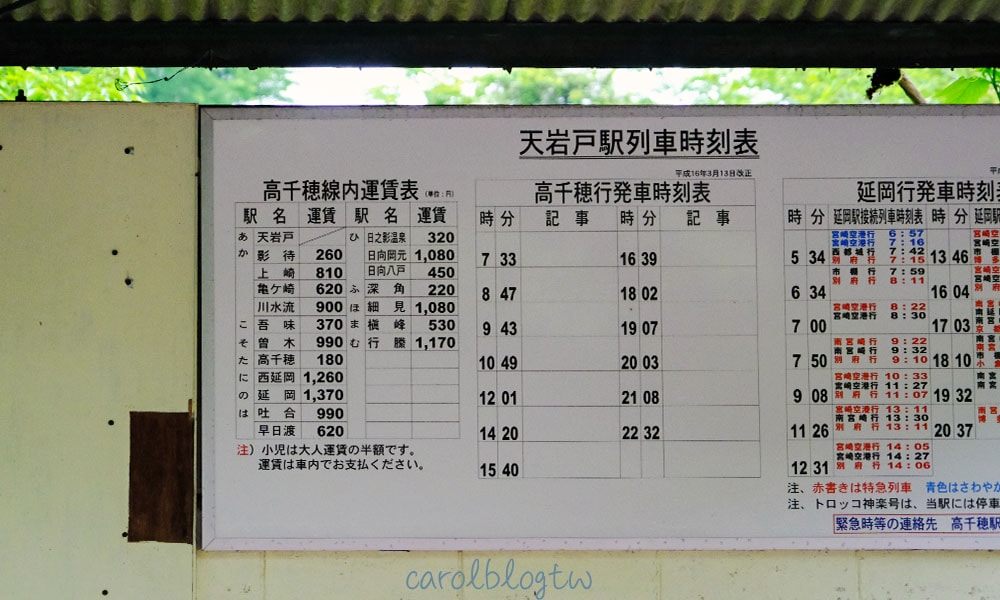 天岩戸駅列車時刻表
平成16年3月13日改正
高千穂線内運賃表 (単位:円)
駅 名 運賃 駅 名 運賃
あ 天岩戸 ひ 日之影温泉 320
か 影 待 260 日向岡元 1,080
上 崎 810 日向八戸 450
亀ケ崎 620 ふ 深 角 220
川水流 900 ほ 細 見 1,080
こ 吾 味 370 ま 槇 峰 530
そ 曽 木 990 む 行 縢 1,170
た 高千穂 180
に 西延岡 1,260
の 延 岡 1,370
は 吐 合 990
早日渡 620
注) 小児は大人運賃の半額です。
運賃は車内でお支払ください。
高千穂行発車時刻表
時 分 記 事 時 分 記 事
7 33 16 39
8 47 18 02
9 43 19 07
10 49 20 03
12 01 21 08
14 20 22 32
15 40
延岡行発車時刻
時 分 延岡駅接続列車時刻表 時 分 延岡駅
宮崎空港行 6:57
宮崎空港行 7:16
5 34 西都城行 7:42 13 46
別府行 7:15
市棚行 7:59
6 34 別府行 8:11 16 04
宮崎空港行 8:22
宮崎空港行 8:30
7 00 17 03
南宮崎行 9:22
南宮崎行 9:32
7 50 別府行 9:10 18 10
宮崎空港行 10:33
宮崎空港行 11:27
9 08 別府行 11:07 19 32
宮崎空港行 13:11
南宮崎行 13:30
11 26 別府行 13:11 20 37
宮崎空港行 14:05
宮崎空港行 14:27
12 31 別府行 14:06
注、赤書きは特急列車 青色はさわやか
注、トロッコ神楽号は、当駅には停車
緊急時等の連絡先 高千穂駅
carolblogtw